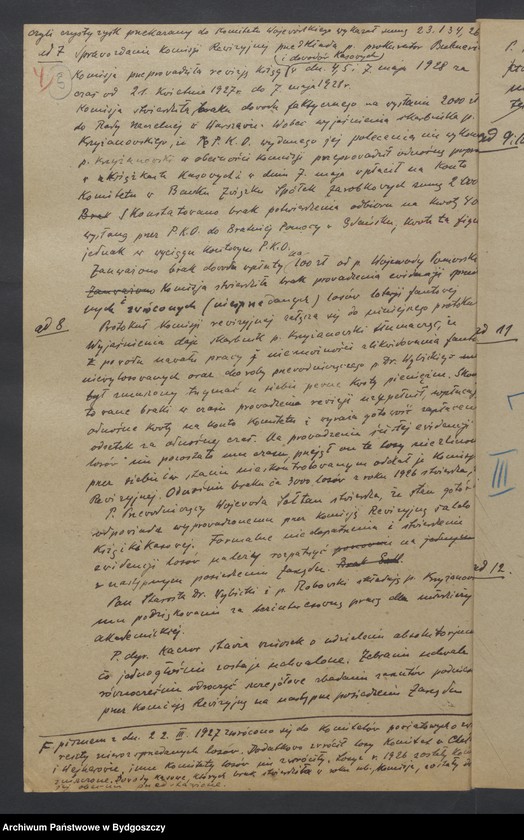 czyli czysty zysk przekazany do Komitetu Wojewódzkiego wykazał sumę 23.134,26
ad 7 Sprawozdanie Komisji Rewizyjnej przedkłada p. prokurator
i dowodów Kasowych
Komisja przeprowadziła rewizję Ksiąg w dn. 4, 5 i 7. maja 1928 za
czas od 21. Kwietnia 1927 r. do 7. maja 1928 r.
Komisja stwierdziła braku dowodu faktycznego na wysłanie 2000 zł
do Rady Naczelnej w Warszawie. Wobec wyjaśnienia skarbnika p.
Krzyżanowskiego, że P.K.O. wydanego jej polecenia nie wykonało
p. Krzyżanowski w obecności Komisji przeprowadził odnośną
w Książkach Kasowych i w dniu 7. maja wpłacił na Konto
Komitetu w Banku Związku Spółek Zarobkowych sumę 2000
Brak Skonstatowano brak potwierdzenia odbioru na kwotę 40
wysłaną przez P.K.O. do Bratniej Pomocy w Gdańsku, kwota ta
jednak w wyciągu kontowym P.K.O.
Zauważono brak dowodu wpłaty na 100 zł od p. Wojewody Pomorskiego
Zauważono Komisja stwierdziła brak prowadzenia ewidencji
nych i zwróconych (niesprzedanych) losów loterji fantowej
ad 8 Protokuł Komisji rewizyjnej załącza się do niniejszego protokułu
Wyjaśnienia daje skarbnik p. Krzyżanowski tłumacząc, że
z powodu nawału pracy i niemożności zlikwidowania fantów
niewylosowanych oraz choroby przewodniczącego p. Dr. Wybickiego
był zmuszony trzymać u siebie pewne kwoty pieniężne.
towane braki w czasie prowadzenia rewizji uzupełnił, wpłacając
odnośne kwoty na konto Komitetu i wyraża gotowość zapłacenia
odsetek za odnośny czas. Na prowadzenie ścisłej ewidencji
losów nie pozostało mu czasu, przejął on te losy
przez siebie w stanie nieskontrolowanym oddał je Komisji
Rewizyjnej. Odnośnie braku ca 3000 losów z roku 1926 stwierdza,
P. Przewodniczący Wojewoda Sołtan stwierdza, że stan gotówki
odpowiada wyprowadzonemu przez Komisję Rewizyjną saldo
Książki Kasowej. Formalne niedopatrzenia i stwierdzenie
ewidencji losów należy rozpatrzyć na
następnym posiedzeniu Zarządu.
Pan Starosta Dr. Wybicki i p. Robowski składają p. Krzyżanow
mu podziękowanie za bezinteresowną pracę dla młodzieży
akademickiej.
P. dyr. Kaczor stawia wniosek o udzielenie absolutorjum
co jednogłośnie zostaje uchwalone. Zebranie uchwala
równocześnie odroczyć szczegółowe zbadanie zarzutów
przez Komisję Rewizyjną na następne posiedzenie Zarządu
F. pismem z dn. 22. III. 1927 zwrócono się do Komitetów powiatowych o
resztę niesprzedanych losów. Dodatkowo zwrócił losy Komitet w
i Wejherowie, inne Komitety losów nie zwróciły. Losy z r. 1926 zostały
zniszczone. Dowody kasowe, których brak stwierdziła w roku ub. Komisja, zostały
jej obecnie przedstawione.
4
3
ad 9
ad 11
III
ad 12.
Archiwum Państwowe w Bydgoszczy